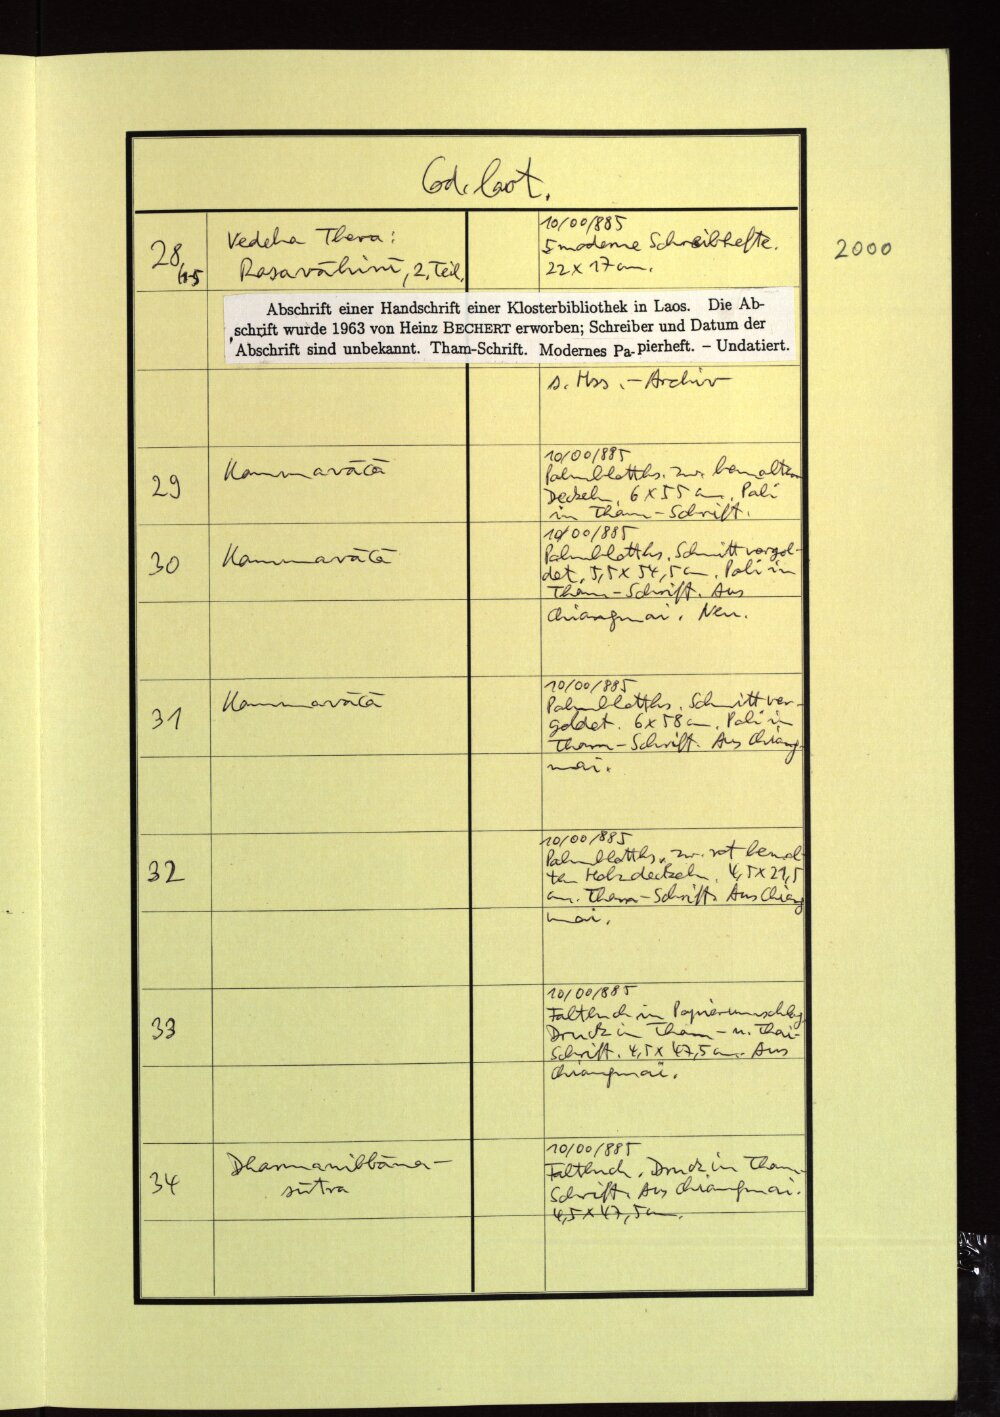 Cod. laot.
28
(1-5
Vedeha Thera:
Rasavāhinī, 2. Teil.
10/00/885
5 moderne Schreibhefte.
22 x 17 cm.
2000
Abschrift einer Handschrift einer Klosterbibliothek in Laos. Die Ab-
schrift wurde 1963 von Heinz BECHERT erworben; Schreiber und Datum der
Abschrift sind unbekannt. Tham-Schrift. Modernes Pa-pierheft. – Undatiert.
s. Hss.-Archiv
29
Kammavācā
10/00/885
Palmblatths. zw. bemalten
Deckeln. 6 x 55 cm. Pali
in Tham-Schrift.
30
Kammavācā
10/00/885
Palmblatths. Schnitt vergol-
det. 5,5 x 54,5 cm. Pali in
Tham-Schrift. Aus
Chiangmai. Neu.
31
Kammavācā
10/00/885
Palmblatths. Schnitt ver-
goldet. 6 x 58 cm. Pali in
Tham-Schrift. Aus Chiang-
mai.
32
10/00/885
Palmblatths. zw. rot bemal-
ten Holzdeckeln. 4,5 x 21,5
cm. Tham-Schrift. Aus Chiang
mai.
33
10/00/885
Faltbuch in Papierumschlag
Druck in Tham- u. Thai-
Schrift. 4,5 x 47,5 cm. Aus
Chiangmai.
34
Dhammanibbāna-
sūtra
10/00/885
Faltbuch. Druck in Tham-
Schrift. Aus Chiangmai.
4,5 x 47,5 cm.